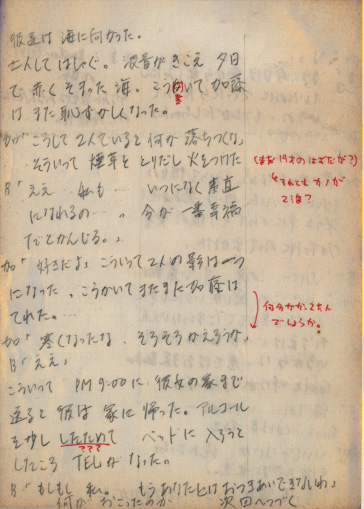 彼達は海に向かった。
二人してはしゃぐ。波音がきこえ 夕日
で赤くそまった海。こう書いて加藤
はまた恥ずかしくなった。
加「こうして2人でいると何か落ちつくな」
そういって煙草をとりだし火をつけた
B「ええ 私も いつになく素直
になれるの… 。今が一番幸福
だとかんじる。」
加「好きだよ」こういって2人の影は一つ
になった。こうかいてまたまた加藤は
てれた…
加「寒くなったな、そろそろかえろうか」
B「ええ」
こういって PM 9:00に 彼女の家まで
送ると彼は家に帰った。アルコール
を少ししたためて ベッドに入ろうと
???
したころ TELがなった。
B「もしもし 私。 もうあなたとはおつきあいできないわ」
何がおこったのか 次回へつづく
(まだ19才のはずだが?)
それとも カノが
21才?
でしょうか。